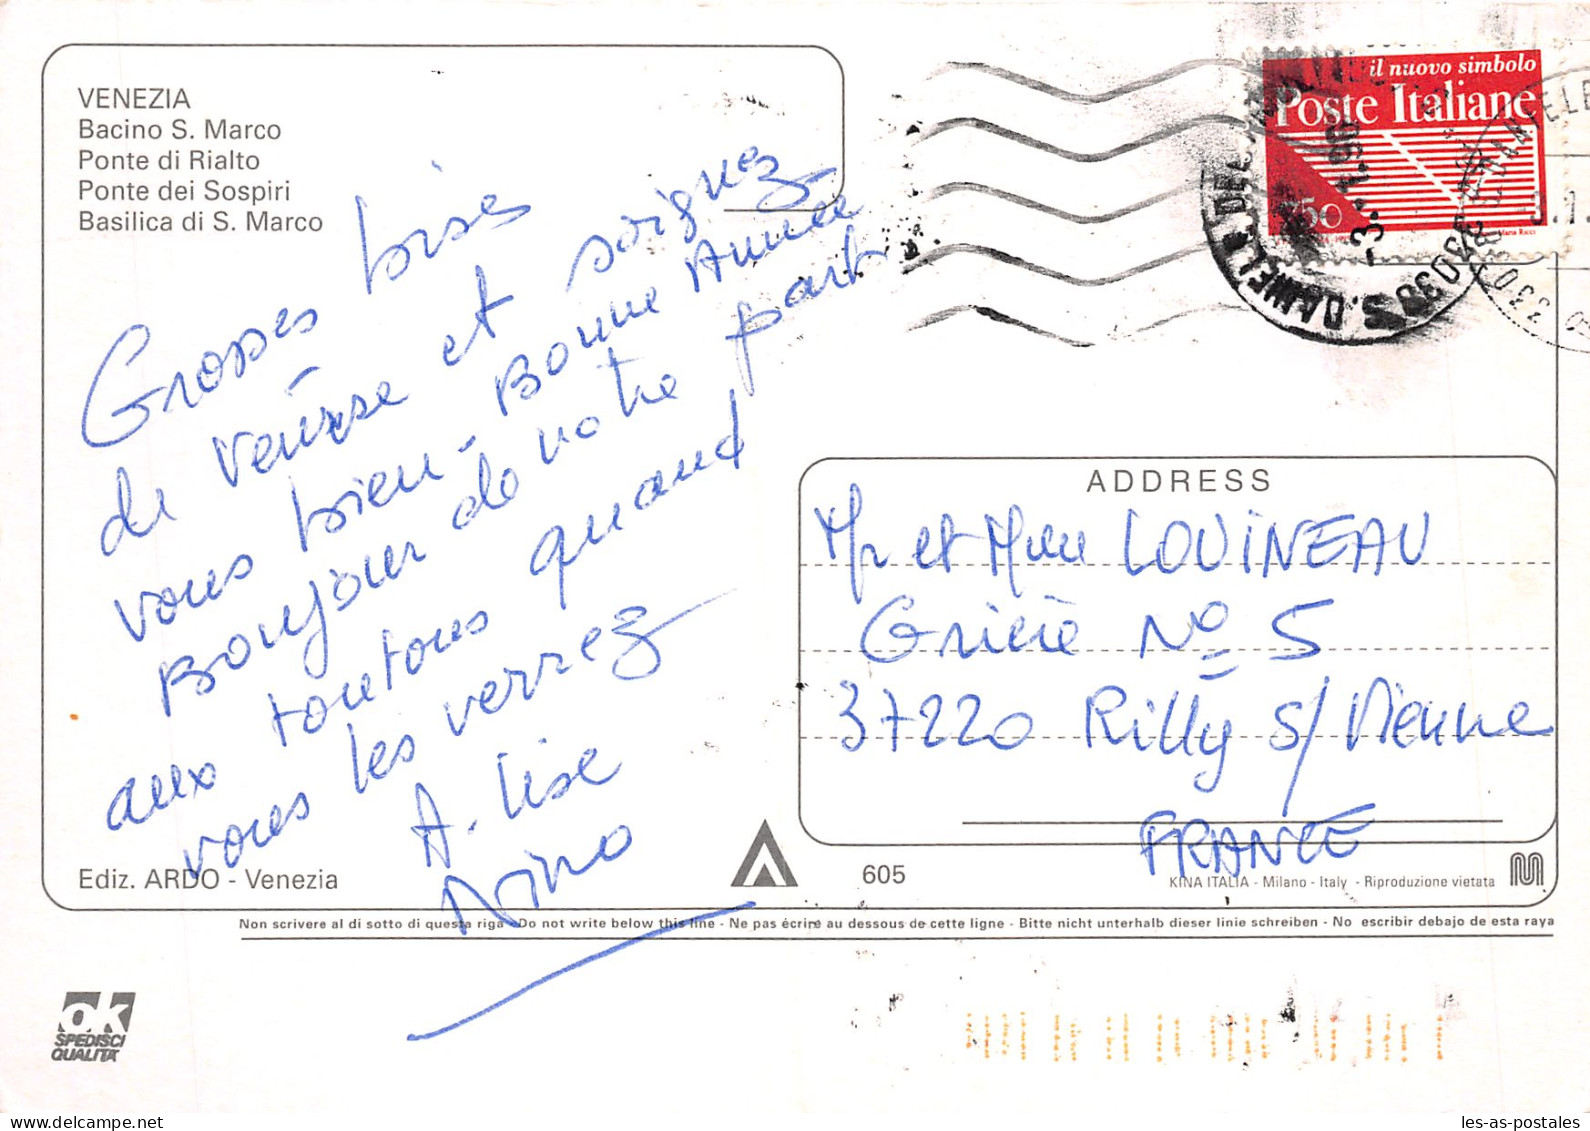 VENEZIA
Bacino S. Marco
Ponte di Rialto
Ponte dei Sospiri
Basilica di S. Marco
Grosses bises
de venise et soignez
vous bien - Bonne Année
Bonjour de notre part
aux toutous quand
vous les verrez
A. Lise
Nino
Ediz. ARDO - Venezia
605
il nuovo simbolo
Poste Italiane
750
S. DANIELE DEL
33038
ADDRESS
Mr et Mme LOUINEAU
Gricié No 5
37220 Rilly s/ Vienne
FRANCE
KINA ITALIA - Milano - Italy - Riproduzione vietata
Non scrivere al di sotto di questa riga - Do not write below this line - Ne pas écrire au dessous de cette ligne - Bitte nicht unterhalb dieser linie schreiben - No escribir debajo de esta raya
ok
SPEDISCI
QUALITÀ
les-as-postales